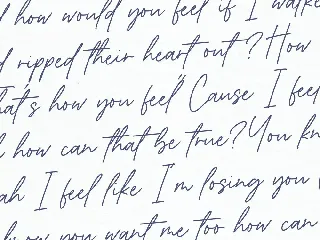 how would you feel if I walke
ripped their heart out? How
hat's how you feel Cause I feel
how can that be true? You kn
ah I feel like I'm losing you
know you want me too how can